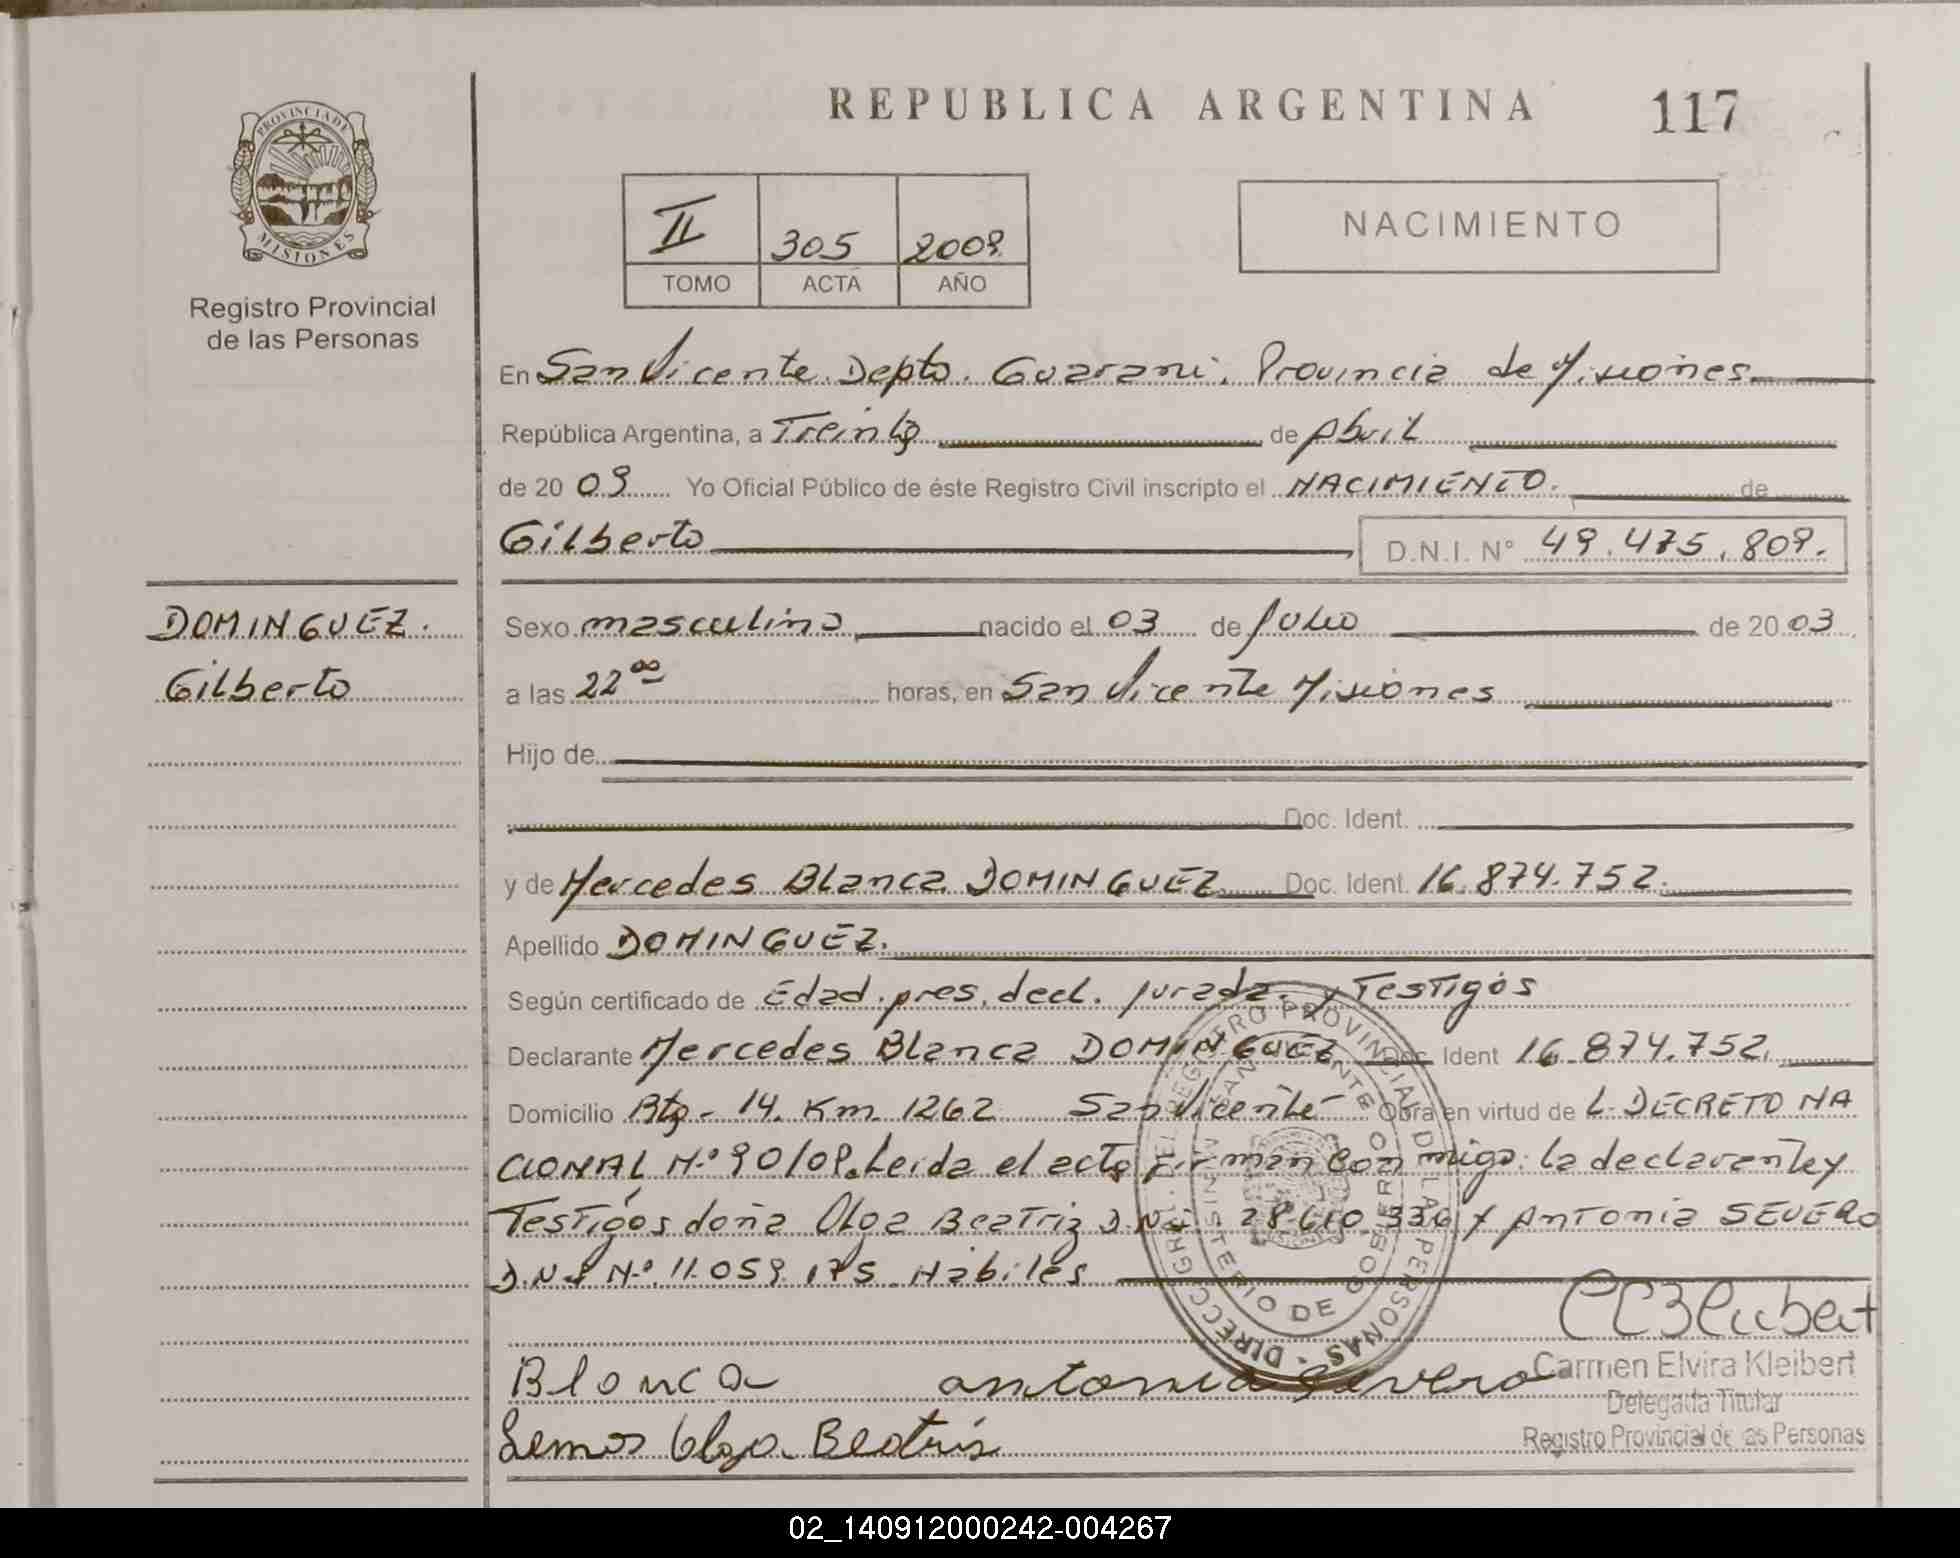 REPUBLICA ARGENTINA
117
PROVINCIA DE
MISIONES
Registro Provincial
de las Personas
II 305 2009
TOMO ACTA AÑO
NACIMIENTO
En San Vicente. Depto. Guarani. Provincia de Misiones.
República Argentina, a Treinta de Abril
de 20 09 Yo Oficial Público de éste Registro Civil inscripto el NACIMIENTO. de
Gilberto D.N.I. N° 49.475.809.
DOMINGUEZ.
Gilberto
Sexo masculino nacido el 03 de Julio de 20 03
a las 22 00 horas, en San Vicente Misiones
Hijo de
Doc. Ident.
y de Mercedes Blanca DOMINGUEZ Doc. Ident. 16.874.752.
Apellido DOMINGUEZ.
Según certificado de Edad. pres. decl. jurada. y Testigos
Declarante Mercedes Blanca DOMINGUEZ Doc. Ident 16.874.752.
Domicilio Rta - 14. Km. 1262 San Vicente Obra en virtud de L. DECRETO NA
CIONAL N.° 90/09. Leida el acta firman conmigo. la declarante y
Testigos doña Olga Beatriz D.N.I. 28.610.336 y Antonia SEVERO
D.N.I N.° 11.059.175. Habiles
DIRECC. GRAL. DEL REGISTRO PROVINCIAL DE LAS PERSONAS
MINISTERIO DE GOBIERNO
SAN VICENTE
Blanca antonia Severo
Carmen Elvira Kleibert
Delegada Titular
Registro Provincial de las Personas
Lemos Olga Beatris
02_140912000242-004267